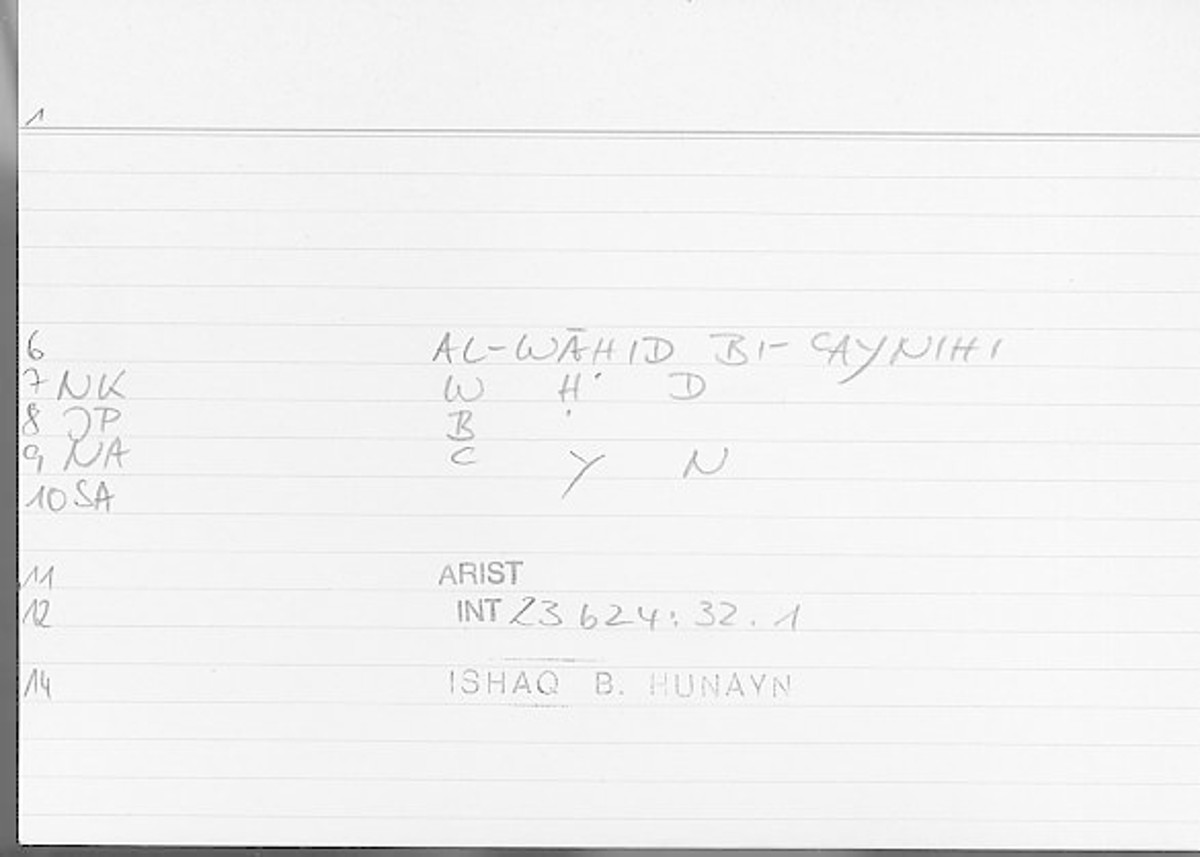 1
6 AL-WĀHID BI- CAYNIHI
7 NK W H· D
8 JP B ·
9 NA C Y N
10 SA
11 ARIST
12 INT 23 624:32.1
14 ISHAQ B. HUNAYN